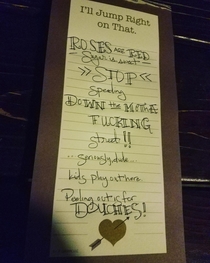 I'll Jump Right
on That.
ROSES ARE RED
Sugar is sweet
»STOP«
speeding
DOWN the MOTHER
FUCKING
street!!
...seriously, dude...
kids play out here.
Peeling out is for
DOUCHES!